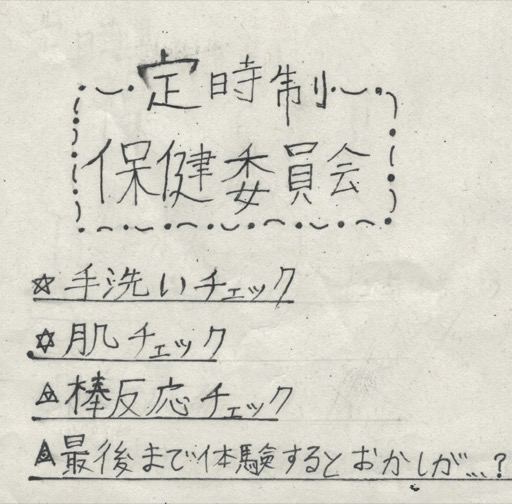 定時制
保健委員会
☆手洗いチェック
☆肌チェック
△棒反応チェック
△最後まで体験するとおかしが...?